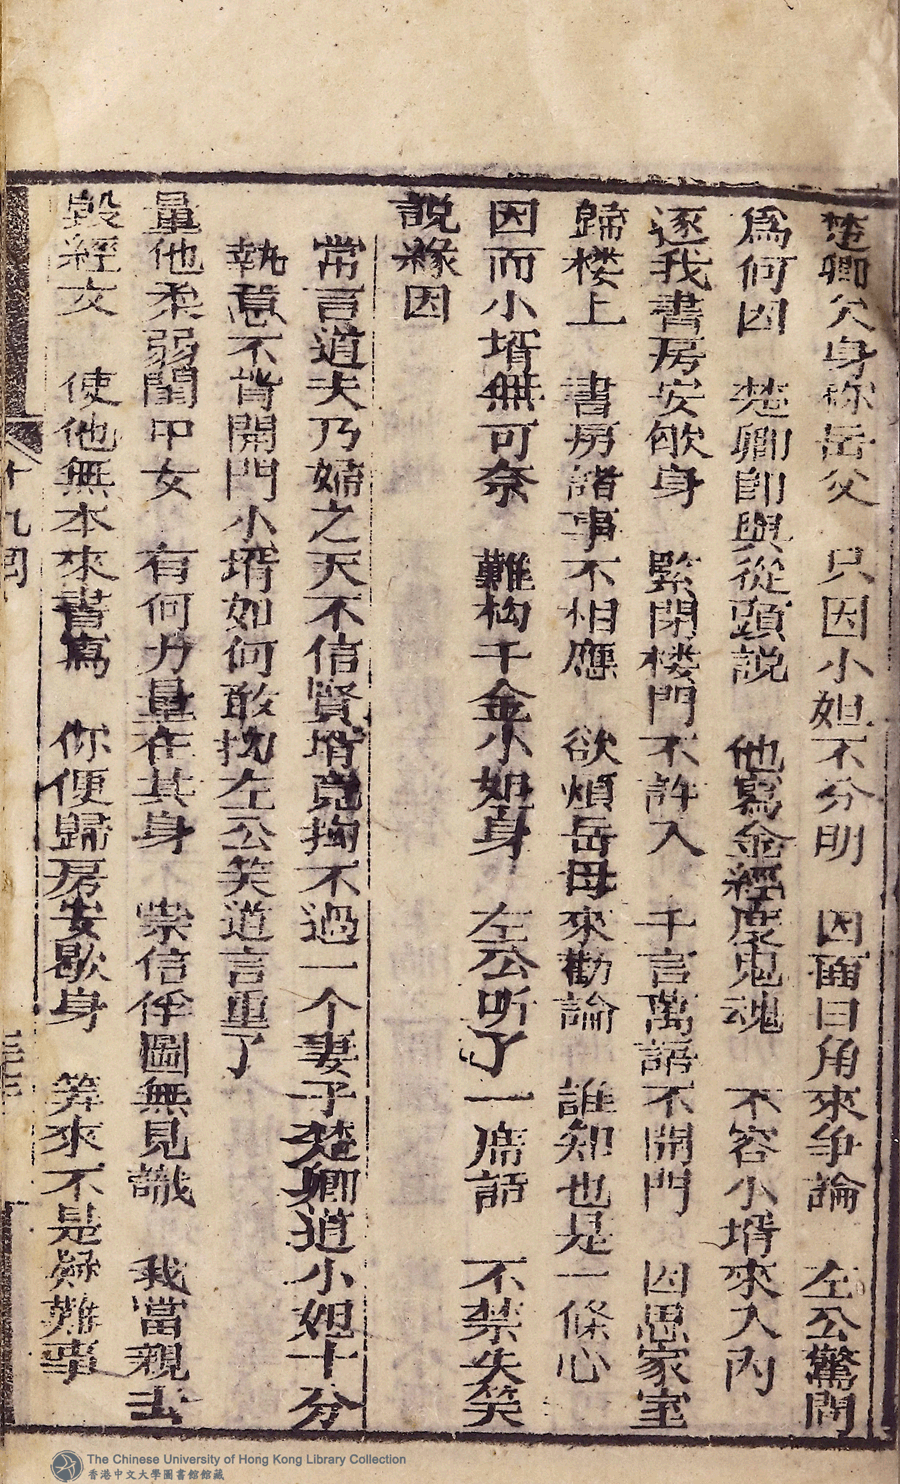 楚卿欠身称岳父　只因小姐不分明　因面曰角來争論　左公驚問
爲何因　楚卿即與從頭説　他寫金經度鬼魂　不容小壻來入内
逐我書房安歇身　緊閉楼門不許入　千言萬語不開門　因思家室
歸楼上　書房諸事不相應　欲煩岳母來勸論　誰知也是一條心
因而小壻無可奈　難拗千金小姐身　左公听了一席話　不禁失笑
説緣因
常言道夫乃婦之天不信賢壻竟拗不過一个妻子楚卿道小姐十分
執意不肯開門小壻如何敢拗左公笑道言重了
量他柔弱閨中女　有何力量在其身　崇信俘圖無見識　我當親去
毀經文　使他無本來書寫　你便歸房安歇身　筭來不是疑難事
十九回
The Chinese University of Hong Kong Library Collection
香港中文大學圖書館館藏